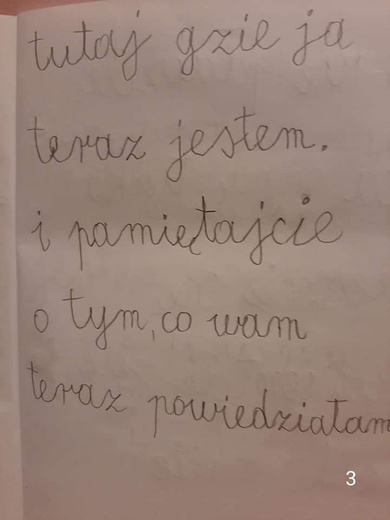 tutaj gzie ja
teraz jestem.
i pamiętajcie
o tym, co wam
teraz powiedziałam
3